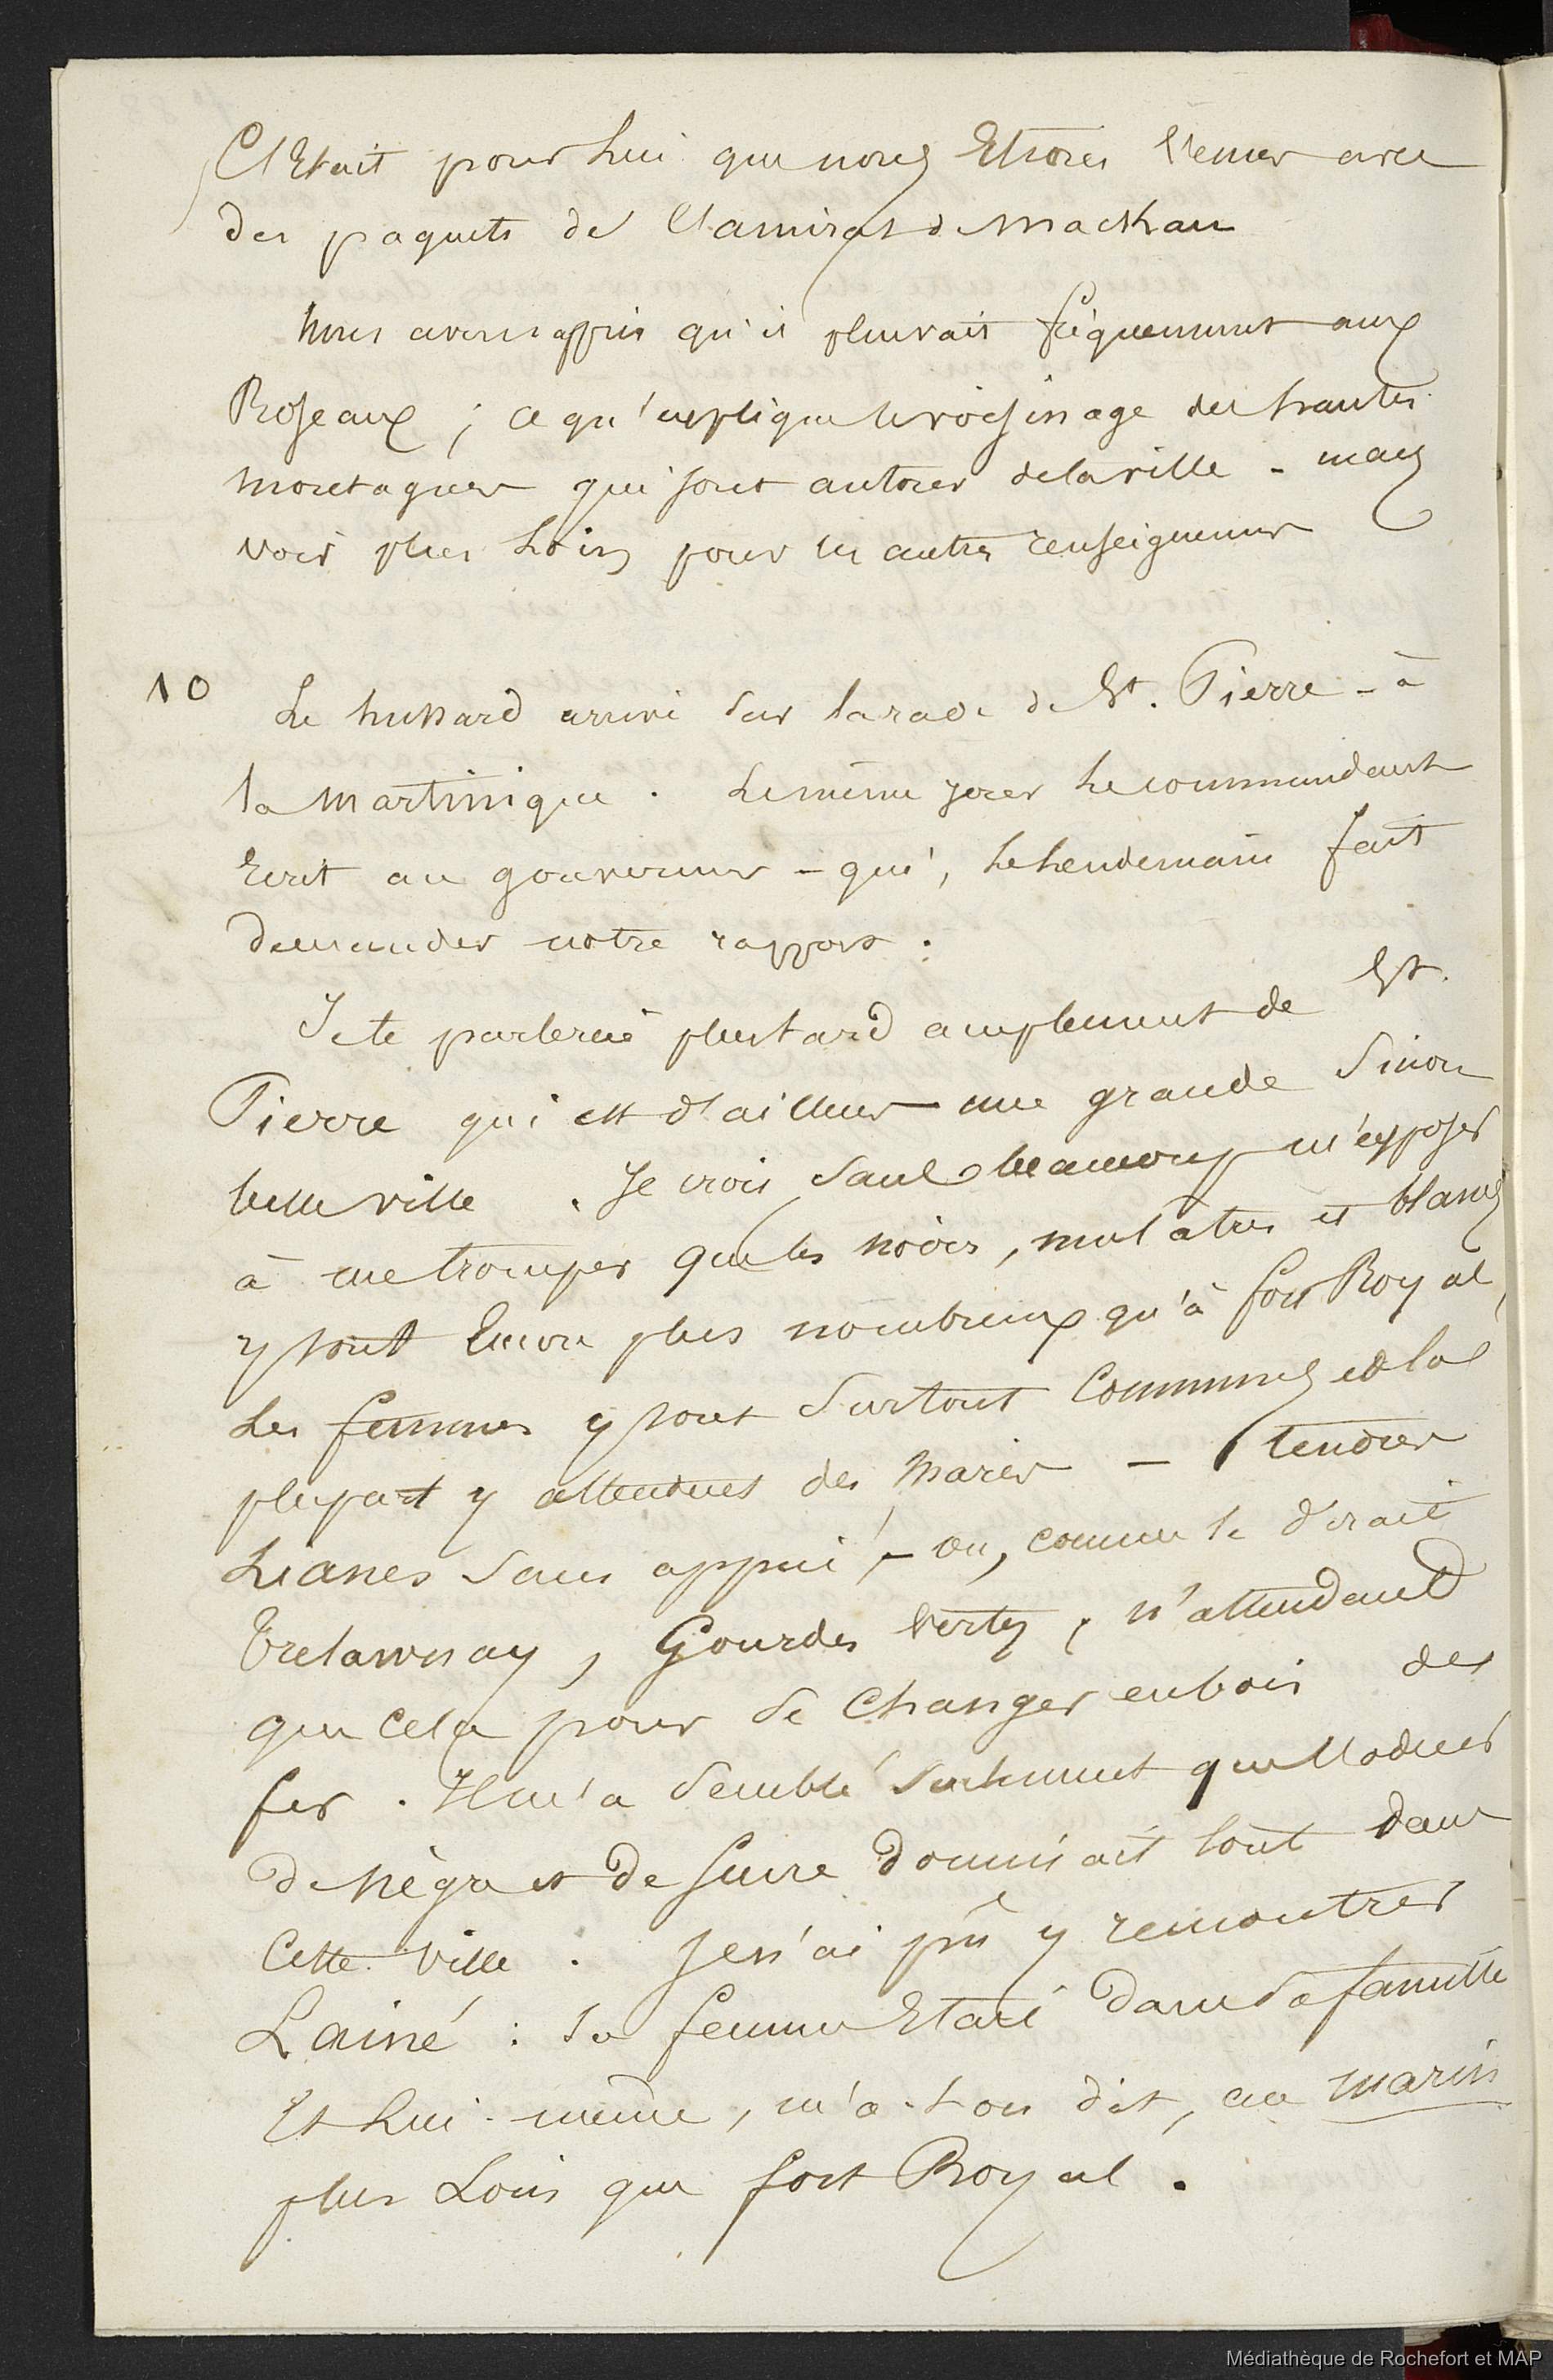 C'Etait pour Lui que nous Etions Venus avec
des paquets de l'amiral de Mackau
Nous avons appris qu'il pleuvait fréquemment aux
Roseaux ; ce qu'explique le voisinage des hautes
montagnes qui sont autour de la ville - mais
voir plus Loin pour les autres renseignemens
10 Le hussard arrivé sur la rade de St. Pierre - à
la Martinique . Le même jour Le commandant
Ecrit au gouverneur - qui, Le Lendemain fait
demander notre rapport :
Je te parlerai plus tard amplement de St.
Pierre qui est d'ailleurs une grande Sinon
belle ville . Je crois sans beaucoup m'exposer
à me tromper que les noirs, mulatres et blancs
y sont Encore plus nombreux qu'à fort Royal,
Les femmes y sont Surtout Communes et la
plupart y attendent des Maris - tendres
Lianes Sans appui, - ou, comme le dirait
Trelawnay, Gourdes Vertes, n'attendant
que cela pour Se Changer en bois de
fer . Il m'a Semblé Seulement que l'odeur
de Nègre et de Sucre dominait tout dans
Cette Ville . Je n'ai pû y rencontrer
Lainé : Sa femme Etait dans Sa famille
Et Lui-même, m'a-t-on dit, au Marin
plus Loin que fort Royal .
Médiathèque de Rochefort et MAP